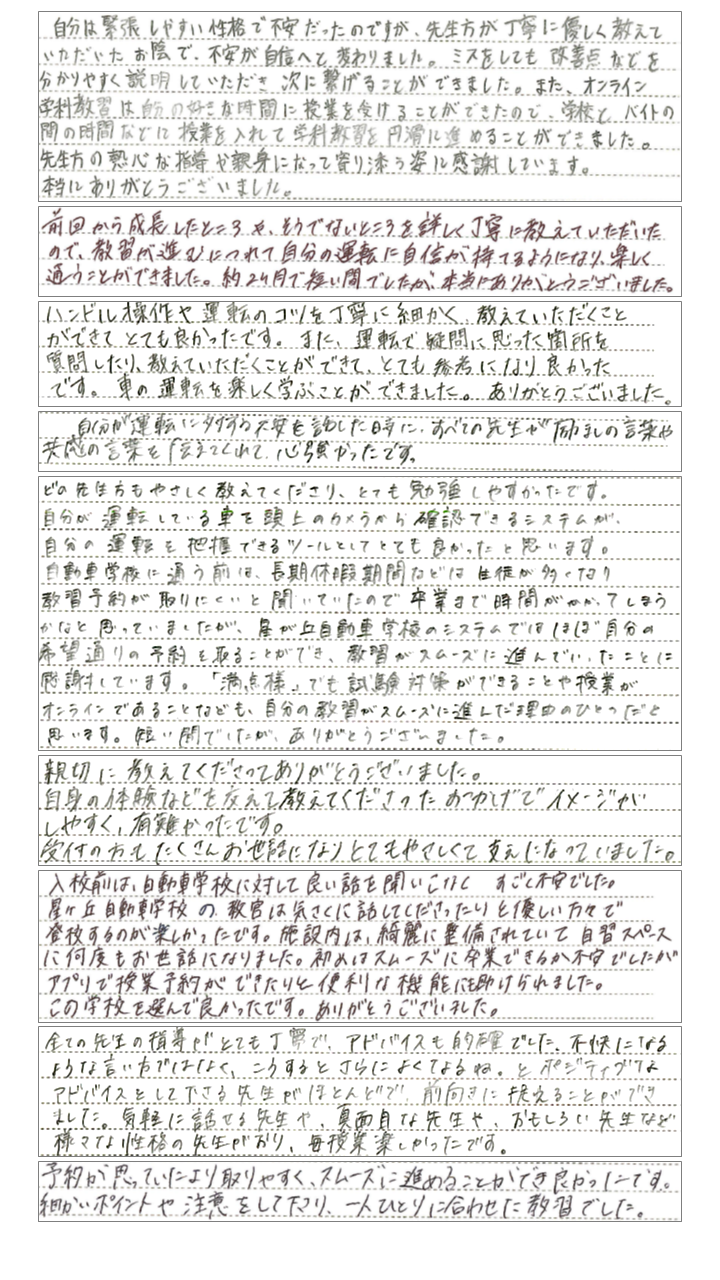 自分は緊張しやすい性格で不安だったのですが、先生方が丁寧に優しく教えて
いただいたお陰で、不安が自信へと変わりました。ミスをしても改善点などを
分かりやすく説明していただき次に繋げることができました。また、オンライン
学科教習は自分の好きな時間に授業を受けることができたので、学校と、バイトの
間の時間などに授業を入れて学科教習を円滑に進めることができました。
先生方の熱心な指導や親身になって寄り添う姿に感謝しています。
本当にありがとうございました。
前回から成長したところや、そうでないところを詳しく丁寧に教えていただいた
ので、教習が進むにつれて自分の運転に自信が持てるようになり、楽しく
通うことができました。約2ヶ月で短い間でしたが、本当にありがとうございました。
ハンドル操作や運転のコツを丁寧に細かく、教えていただくこと
ができてとても良かったです。また、運転で疑問に思った箇所を
質問したり、教えていただくことができて、とても参考になり良かった
です。車の運転を楽しく学ぶことができました。。ありがとうございました。
自分が運転に対する不安を話した時に、すべての先生が励ましの言葉や
共感の言葉を伝えてくれて、心強かったです。
どの先生方もやさしく教えてくださり、とても勉強しやすかったです。
自分が運転している車を頭上のカメラから確認できるシステムが、
自分の運転を把握できるツールとしてとても良かったと思います。
自動車学校に通う前は、長期休暇期間などは生徒が多くなり
教習予約が取りにくいと聞いていたので卒業まで時間がかかってしまう
かなと思っていましたが、星が丘自動車学校のシステムではほぼ自分の
希望通りの予約を取ることができ、教習がスムーズに進んでいったことに
感謝しています。「満点様」でも試験対策ができることや授業が
オンラインであることなども、自分の教習がスムーズに進んだ理由のひとつだと
思います。短い間でしたが、ありがとうございました。
親切に教えてくださってありがとうございました。
自身の体験などを交えて教えてくださったおかげでイメージが
しやすく、有難かったです。
受付の方もたくさんお世話になりとてもやさしくて支えになっていました。
入校前は、自動車学校に対して良い話を聞いてなく　すごく不安でした。
星ヶ丘自動車学校の教官は気さくに話してくださったりと優しい方々で
登校するのが楽しかったです。施設内は、綺麗に整備されていて自習スペース
に何度もお世話になりました。初めはスムーズに卒業できるか不安でしたが
アプリで授業予約ができたりと便利な機能に助けられました。
この学校を選んで良かったです。ありがとうございました。
全ての先生の指導がとても丁寧で、アドバイスも的確でした。不快になる
ような言い方ではなく、こうするとさらによくなるね。とポジティブな
アドバイスとして下さる先生がほとんどで、前向きに捉えることができ
ました。気軽に話せる先生や、真面目な先生や、おもしろい先生など
様々な性格の先生がおり、毎授業楽しかったです。
予約が思っていたより取りやすく、スムーズに進めることができ良かったです。
細かいポイントや注意をして下さり、一人ひとりに合わせた教習でした。